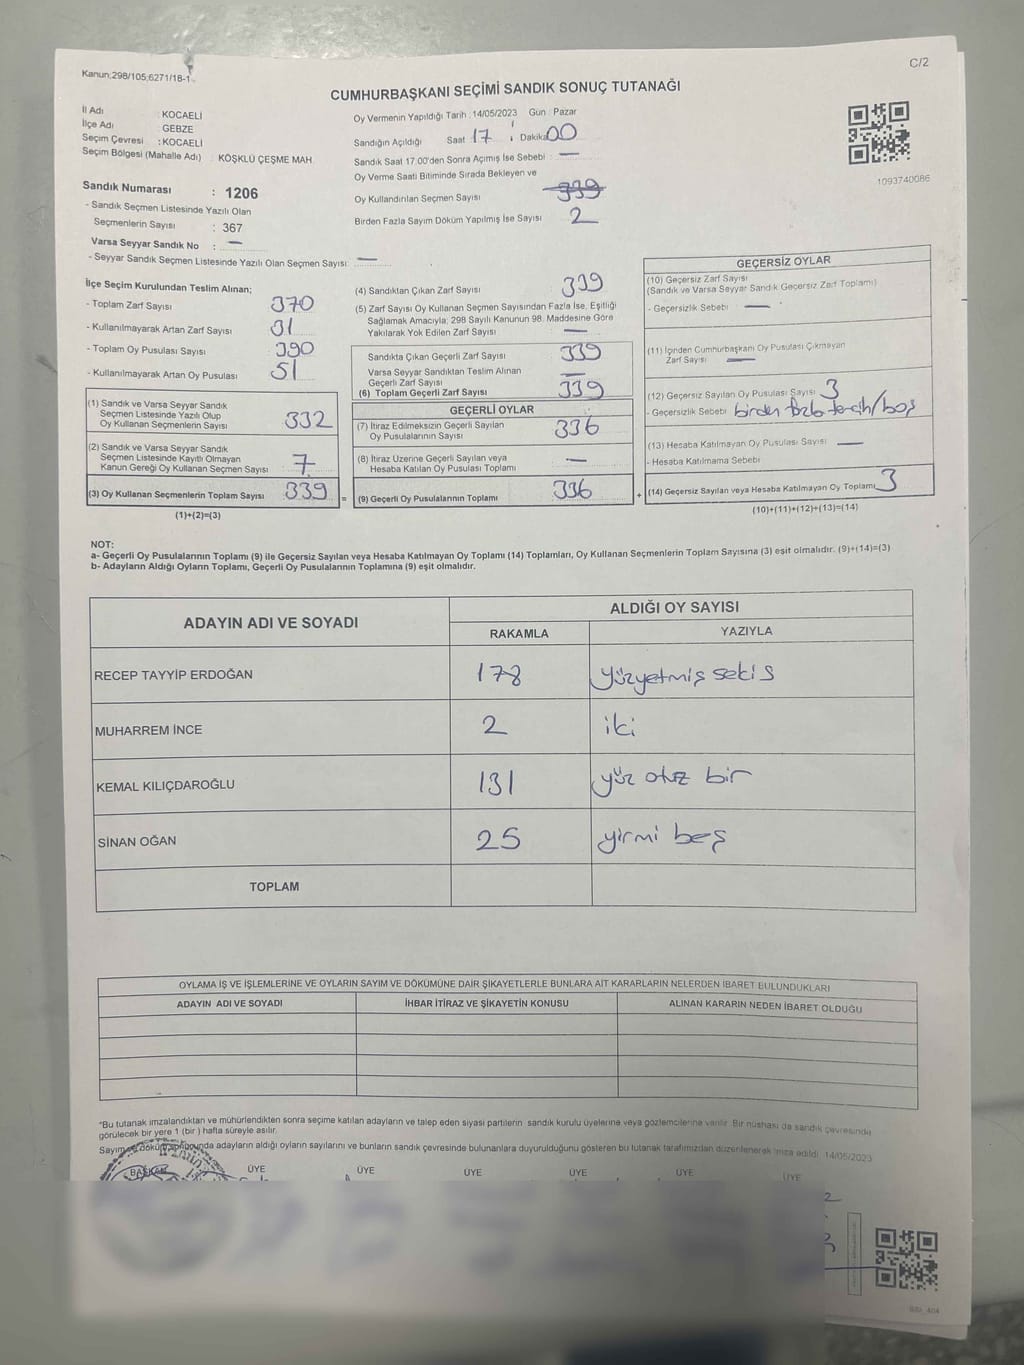 Kanun;298/105,6271/18-1
C/2
CUMHURBAŞKANI SEÇİMİ SANDIK SONUÇ TUTANAĞI
İl Adı : KOCAELİ
İlçe Adı : GEBZE
Seçim Çevresi : KOCAELİ
Seçim Bölgesi (Mahalle Adı) : KÖŞKLÜ ÇEŞME MAH.
Sandık Numarası : 1206
- Sandık Seçmen Listesinde Yazılı Olan
Seçmenlerin Sayısı : 367
Varsa Seyyar Sandık No : —
- Seyyar Sandık Seçmen Listesinde Yazılı Olan Seçmen Sayısı: —
Oy Vermenin Yapıldığı Tarih : 14/05/2023 Gün : Pazar
Sandığın Açıldığı Saat 17 , Dakika 00
Sandık Saat 17.00'den Sonra Açımış İse Sebebi : —
Oy Verme Saati Bitiminde Sırada Bekleyen ve
Oy Kullandırılan Seçmen Sayısı 339
Birden Fazla Sayım Döküm Yapılmış İse Sayısı 2
1093740086
İlçe Seçim Kurulundan Teslim Alınan;
- Toplam Zarf Sayısı 370
- Kullanılmayarak Artan Zarf Sayısı 31
- Toplam Oy Pusulası Sayısı 390
- Kullanılmayarak Artan Oy Pusulası 51
(1) Sandık ve Varsa Seyyar Sandık
Seçmen Listesinde Yazılı Olup
Oy Kullanan Seçmenlerin Sayısı 332
(2) Sandık ve Varsa Seyyar Sandık
Seçmen Listesinde Kayıtlı Olmayan
Kanun Gereği Oy Kullanan Seçmen Sayısı 7
(3) Oy Kullanan Seçmenlerin Toplam Sayısı 339 =
(1)+(2)=(3)
(4) Sandıktan Çıkan Zarf Sayısı 339
(5) Zarf Sayısı Oy Kullanan Seçmen Sayısından Fazla İse, Eşitliği
Sağlamak Amacıyla; 298 Sayılı Kanunun 98. Maddesine Göre
Yakılarak Yok Edilen Zarf Sayısı —
Sandıkta Çıkan Geçerli Zarf Sayısı 339
Varsa Seyyar Sandıktan Teslim Alınan
Geçerli Zarf Sayısı —
(6) Toplam Geçerli Zarf Sayısı 339
GEÇERLİ OYLAR
(7) İtiraz Edilmeksizin Geçerli Sayılan
Oy Pusulalarının Sayısı 336
(8) İtiraz Üzerine Geçerli Sayılan veya
Hesaba Katılan Oy Pusulası Toplamı —
(9) Geçerli Oy Pusulalarının Toplamı 336 +
GEÇERSİZ OYLAR
(10) Geçersiz Zarf Sayısı
(Sandık ve Varsa Seyyar Sandık Geçersiz Zarf Toplamı)
- Geçersizlik Sebebi —
(11) İçinden Cumhurbaşkanı Oy Pusulası Çıkmayan
Zarf Sayısı —
(12) Geçersiz Sayılan Oy Pusulası Sayısı 3
- Geçersizlik Sebebi birden fazla tercih/boş
(13) Hesaba Katılmayan Oy Pusulası Sayısı —
- Hesaba Katılmama Sebebi
(14) Geçersiz Sayılan veya Hesaba Katılmayan Oy Toplamı 3
(10)+(11)+(12)+(13)=(14)
NOT:
a- Geçerli Oy Pusulalarının Toplamı (9) ile Geçersiz Sayılan veya Hesaba Katılmayan Oy Toplamı (14) Toplamları, Oy Kullanan Seçmenlerin Toplam Sayısına (3) eşit olmalıdır. (9)+(14)=(3)
b- Adayların Aldığı Oyların Toplamı, Geçerli Oy Pusulalarının Toplamına (9) eşit olmalıdır.
ADAYIN ADI VE SOYADI
ALDIĞI OY SAYISI
RAKAMLA YAZIYLA
RECEP TAYYİP ERDOĞAN 178 yüzyetmiş sekis
MUHARREM İNCE 2 iki
KEMAL KILIÇDAROĞLU 131 yüz otuz bir
SİNAN OĞAN 25 yirmi beş
TOPLAM
OYLAMA İŞ VE İŞLEMLERİNE VE OYLARIN SAYIM VE DÖKÜMÜNE DAİR ŞİKAYETLERLE BUNLARA AİT KARARLARIN NELERDEN İBARET BULUNDUKLARI
ADAYIN ADI VE SOYADI İHBAR İTİRAZ VE ŞİKAYETİN KONUSU ALINAN KARARIN NEDEN İBARET OLDUĞU
*Bu tutanak imzalandıktan ve mühürlendikten sonra seçime katılan adayların ve talep eden siyasi partilerin sandık kurulu üyelerine veya gözlemcilerine verilir. Bir nüshası da sandık çevresinde
görülecek bir yere 1 (bir) hafta süreyle asılır.
Sayım ve döküm adayların aldığı oyların sayılarını ve bunların sandık çevresinde bulunanlara duyurulduğunu gösteren bu tutanak tarafımızdan düzenlenerek imza edildi. 14/05/2023
BAŞKAN ÜYE ÜYE ÜYE ÜYE ÜYE ÜYE